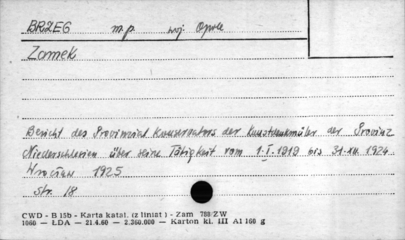 BRZEG m.p. woj. Opole
Zamek
Bericht des Provinzial Konservators der Kunstdenkmäler der Provinz
Niederschlesien über seine Tätigkeit vom 1.I.1919 bis 31.XII.1924
Wrocław 1925
Str. 18
CWD - B 15b - Karta katal. (z liniat) - Zam 788/ZW
1060 — ŁDA — 21.4.60 — 2.360.000 — Karton kl. III A1 160 g